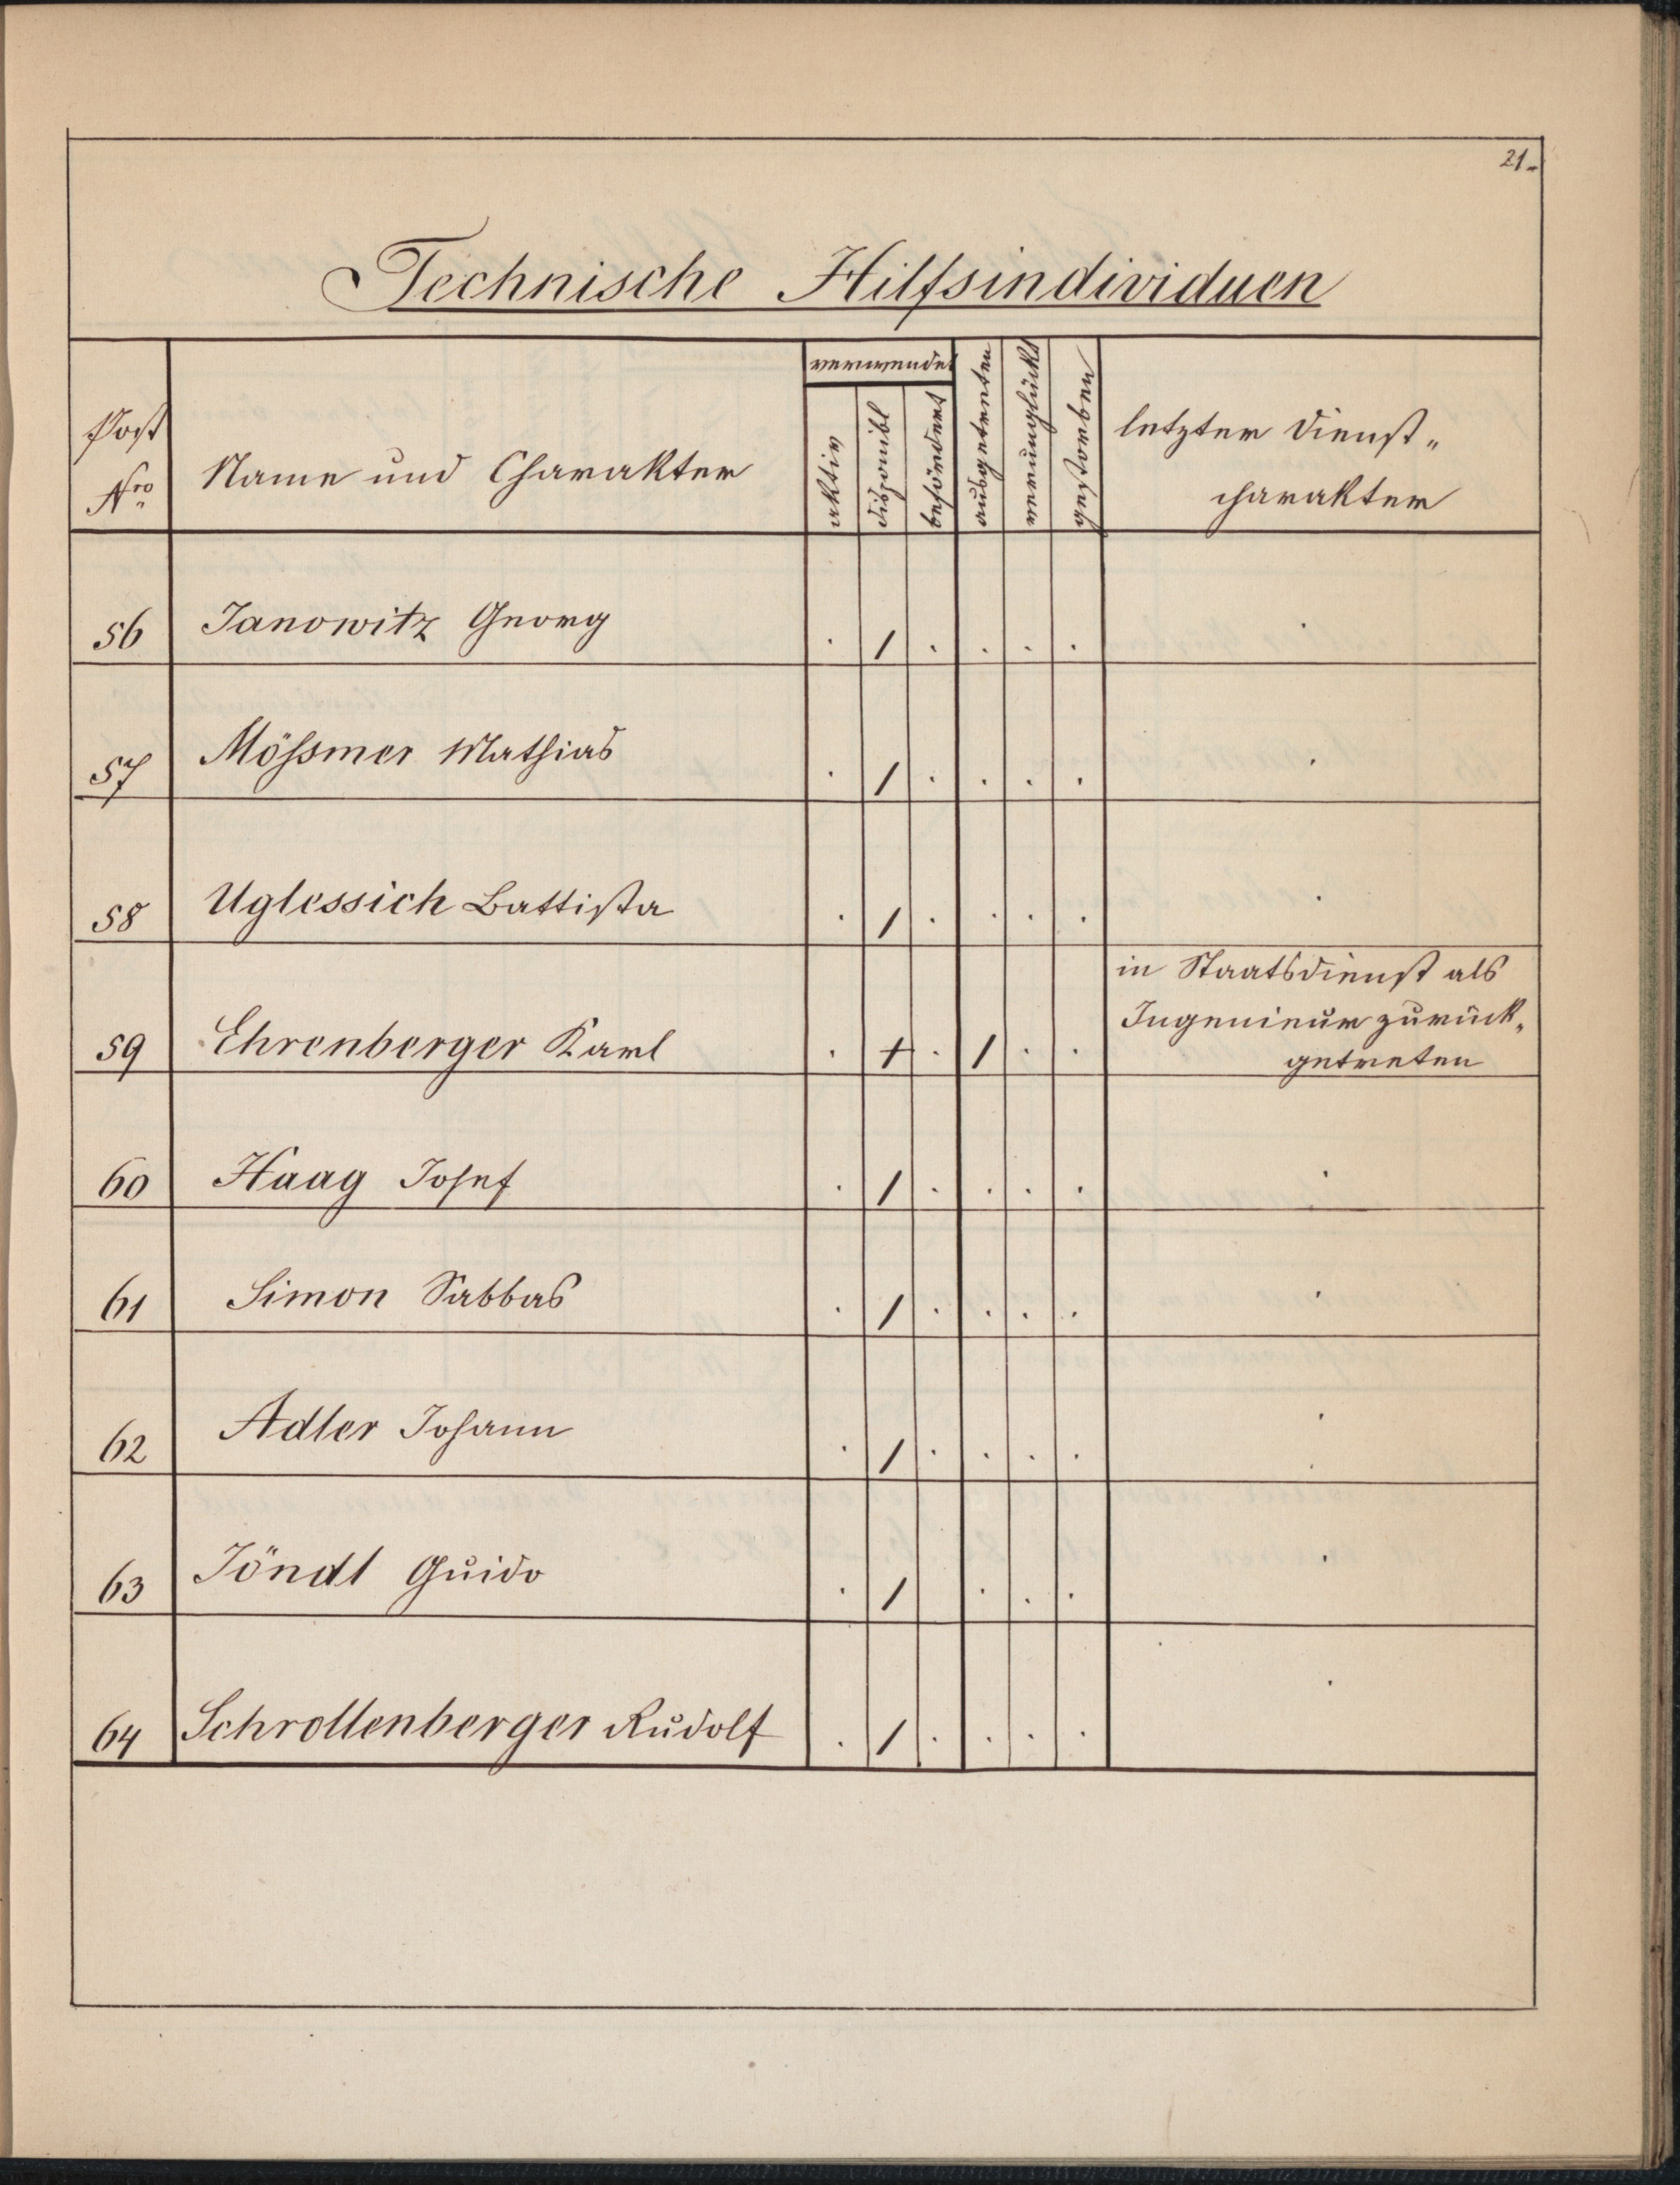 21.
Technische Hilfsindividuen
Post Nro
Name und Charakter
verwendet
aktiv
disponibl
befördert
ausgetreten
verunglückt
gestorben
letzter Dienst„
charakter
56 Janowitz Georg . 1 . . . . .
57 Mössmer Mathias . 1 . . . . .
58 Uglessich Battista . 1 . . . . .
in Staatsdienst als
Ingenieur zurück„
59 Ehrenberger Karl . + . 1 . . getreten
60 Haag Josef . 1 . . . . .
61 Simon Sabbas . 1 . . . . .
62 Adler Johann . 1 . . . . .
63 Jöndl Guido . 1 . . . .
64 Schrollenberger Rudolf . 1 . . . . .